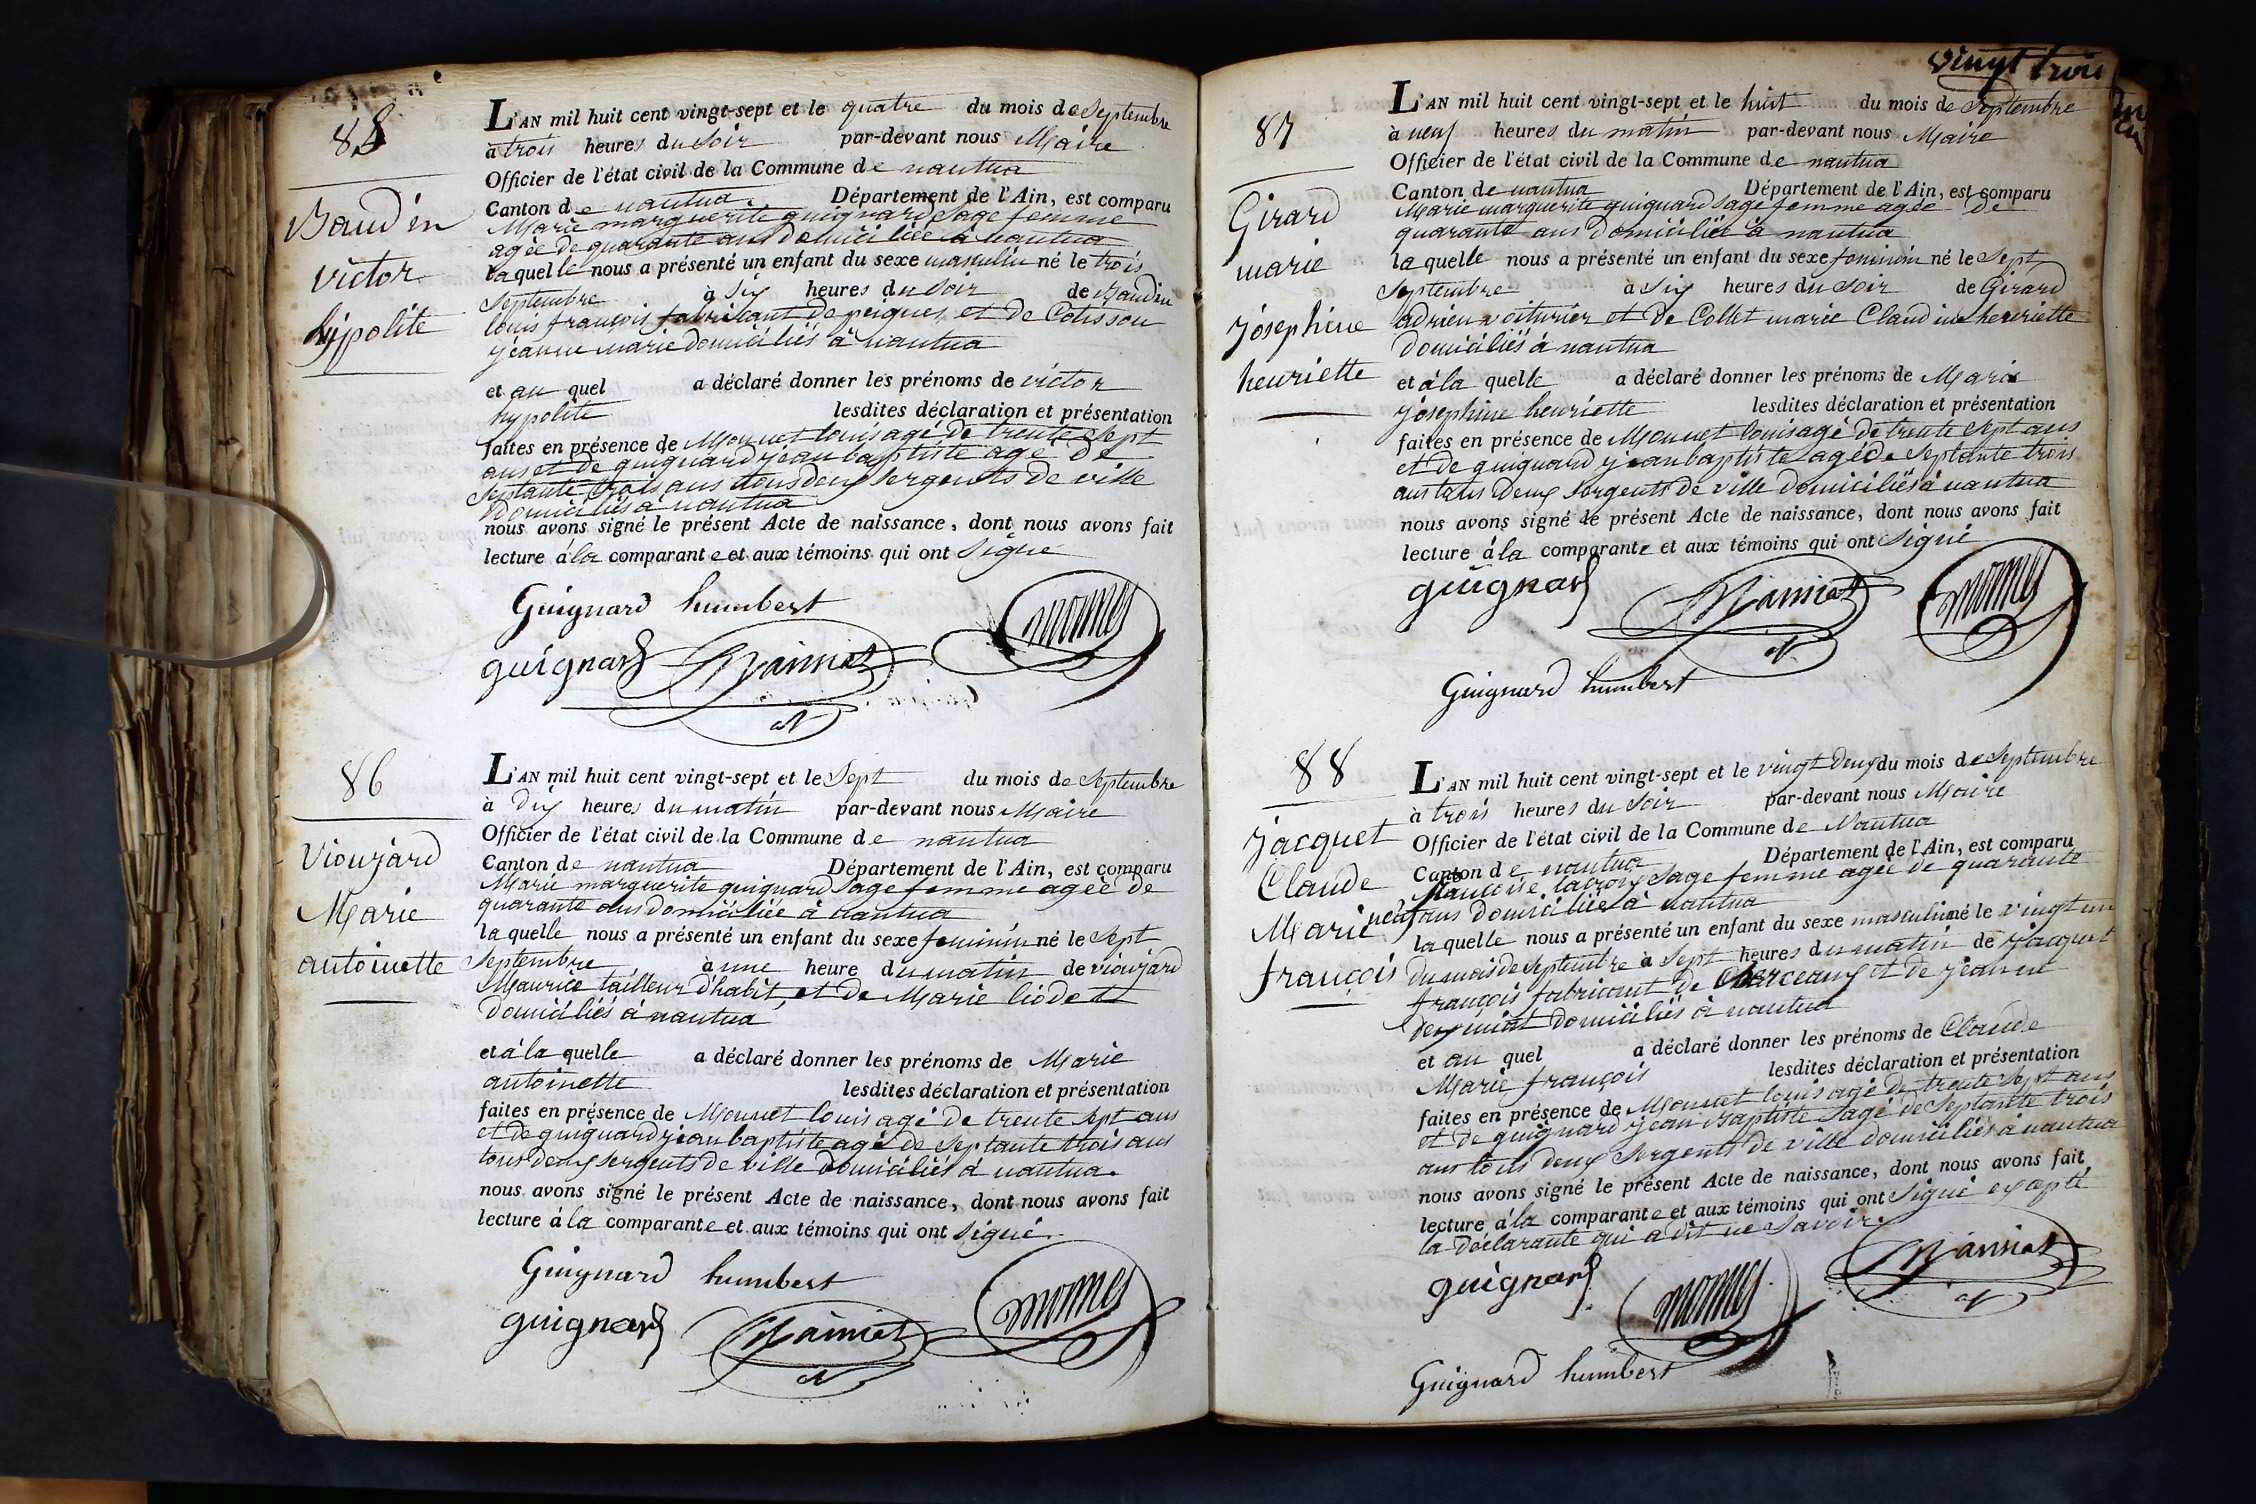 85
Baudin
victor
hypolite
L'AN mil huit cent vingt-sept et le quatre du mois de Septembre
à trois heures du Soir par-devant nous Maire
Officier de l'état civil de la Commune de nantua
Canton de nantua. Département de l'Ain, est comparu
Marie marguerite guignard Sage femme
agée de quarante ans domiciliée à nantua
laquelle nous a présenté un enfant du sexe masculin né le trois
Septembre à Six heures du Soir de Baudin
louis françois fabricant de peignes et de Coisson
jeanne marie domiciliés à nantua
et au quel a déclaré donner les prénoms de victor
hypolite lesdites déclaration et présentation
faites en présence de Monnet louis agé de trente Sept
ans et de guignard jean baptiste agé de
Septante trois ans tous deux Sergents de ville
domiciliés à nantua
nous avons signé le présent Acte de naissance, dont nous avons fait
lecture à la comparante et aux témoins qui ont Signé
Guignard humbert
guignard monnet
86
Vioujard
Marie
antoinette
L'AN mil huit cent vingt-sept et le Sept du mois de Septembre
à dix heures du matin par-devant nous Maire
Officier de l'état civil de la Commune de nantua
Canton de nantua Département de l'Ain, est comparu
Marie marguerite guignard Sage femme agée de
quarante ans domiciliée à nantua
laquelle nous a présenté un enfant du sexe feminin né le Sept
Septembre à une heure du matin de vioujard
Maurice tailleur d'habit, et de Marie liodet
domiciliés à nantua
et à la quelle a déclaré donner les prénoms de Marie
antoinette lesdites déclaration et présentation
faites en présence de Monnet louis agé de trente Sept ans
et de guignard jean baptiste agé de Septante trois ans
tous deux Sergents de ville domiciliés à nantua.
nous avons signé le présent Acte de naissance, dont nous avons fait
lecture à la comparante et aux témoins qui ont Signé.
Guignard humbert
guignard monnet
vingt trois
87
Girard
marie
josephine
henriette
L'AN mil huit cent vingt-sept et le huit du mois de Septembre
à neuf heures du matin par-devant nous Maire
Officier de l'état civil de la Commune de nantua
Canton de nantua Département de l'Ain, est comparu
Marie marguerite guignard Sage femme agée de
quarante ans domiciliée à nantua
la quelle nous a présenté un enfant du sexe feminin né le Sept
Septembre à Six heures du Soir de Girard
adrien voiturier et de Collet marie Claudine henriette
domiciliés à nantua
et à la quelle a déclaré donner les prénoms de Marie
josephine henriette lesdites déclaration et présentation
faites en présence de Monnet louis agé de trente Sept ans
et de guignard jean baptiste agé de Septante trois
ans tous deux Sergents de ville domiciliés à nantua
nous avons signé le présent Acte de naissance, dont nous avons fait
lecture à la comparante et aux témoins qui ont Signé
guignard monnet
Guignard humbert
88
jacquet
Claude
Marie
françois
L'AN mil huit cent vingt-sept et le vingt deux du mois de Septembre
à trois heures du Soir par-devant nous Maire
Officier de l'état civil de la Commune de Nantua
Canton de nantua Département de l'Ain, est comparu
françoise lacroix Sage femme agée de quarante
neuf ans domiciliée à nantua
laquelle nous a présenté un enfant du sexe masculin né le vingt un
du mois de Septembre à Sept heures du matin de jacquet
françois fabricant de et de jeanne
domiciliés à nantua
et au quel a déclaré donner les prénoms de Claude
Marie françois lesdites déclaration et présentation
faites en présence de Monnet louis agé de trente Sept ans
et de guignard jean Baptiste agé de Septante trois
ans tous deux Sergents de ville domiciliés à nantua
nous avons signé le présent Acte de naissance, dont nous avons fait
lecture à la comparante et aux témoins qui ont Signé excepté
la déclarante qui a dit ne Savoir.
guignard monnet
Guignard humbert